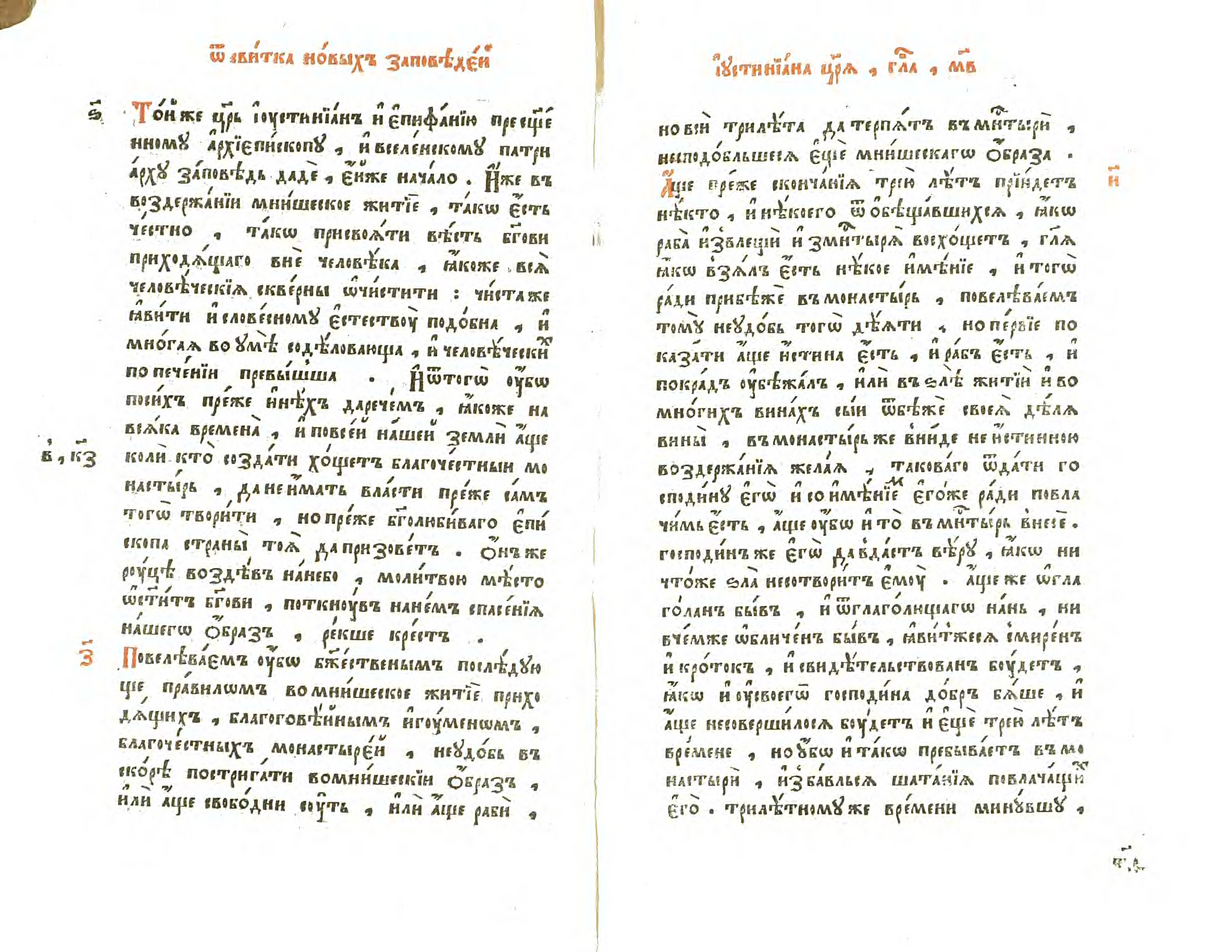 ѿ свитка но́выхъ за́повѣде́й
ѕ҃
То́йже цр҃ь і҆оустинїа́нъ и҆ є҆пифа́нїю пресщ҃е
нному а҆рхїепи́скопу , и҆ вселе́нскому патри
а́рху за́повѣдь дадѐ , є҆йже нача́ло . И҆́же въ
воздержа́нїи мни́шеское житїѐ , та́кѡ є҆́сть
че́стно , та́кѡ присвоя́ти вѣ́сть бг҃ови
приходя́щаго в̾нѐ человѣ́ка , ꙗ҆́коже вся̀
человѣ́ческїя скве́рны ѡ҆чи́стити : чи́ста же
ꙗ҆ви́ти и҆ слове́сному є҆стествоу̀ подо́бна , и҆
мно́гая во у҆мѣ̀ содѣ́ловающа , и҆ человѣ́чески
попече́нїи превы́шша . И҆ ѿтогѡ̀ оу҆́бѡ
поси́хъ пре́же и҆нѣ́хъ дарече́мъ , ꙗ҆́коже на
вся́ка времена̀ , и҆ повсе́й на́шей землѝ а҆́ще
в҃ , к҃з
коли́ кто̀ созда́ти хо́щетъ благоче́стныи мо
насты́рь , да неи҆́мать вла́сти пре́же са́мъ
тогѡ̀ твори́ти , но пре́же бг҃олюби́ваго є҆пи́
скопа страны̀ тоя̀ да призове́тъ . О҆́нъ же
роу́цѣ воздѣ́въ на́небо , моли́твою мѣ́сто
ѡ҆ст҃и́тъ бг҃ови , поткноу́въ нане́мъ спасе́нїя
на́шегѡ о҆́бразъ , ре́кше кре́стъ .
з҃
Повелѣва́емъ оу҆́бѡ бж҃е́ственымъ послѣ́дую
ще пра́вилѡмъ во мни́шеское житїѐ прихо
дя́щихъ , благоговѣ́йнымъ и҆гоу́меномъ ,
благоче́стныхъ монастыре́й , неудо́бь въ
ско́рѣ пострига́ти во мни́шескїи о҆́бразъ ,
и҆лѝ а҆́ще свобо́дни соу́ть , и҆лѝ а҆́ще рабѝ ,
і҆устинїа́на цр҃я̀ , гл҃а̀ , м҃в
но вси̑ трилѣ́та да терпя́тъ въ мн҃тырѝ ,
несподо́бльшеся є҆щѐ мни́шескагѡ о҆́браза .
и҃
А҆́ще пре́же сконча́нїя трїю̀ лѣ́тъ прїи́детъ
нѣ́кто , и҆ нѣ́коего ѿ ѡ҆бѣща́вшихся , ꙗ҆́кѡ
раба̀ и҆звлещѝ и҆з̾ мн҃тыря̀ восхо́щетъ , гл҃я
ꙗ҆́кѡ взя́лъ є҆́сть нѣ́кое и҆мѣ́нїе , и҆ тогѡ̀
ра́ди прибѣ́же въ монасты́рь , повелѣва́емъ
томꙋ̀ неудо́бь тогѡ̀ дѣ́яти , но пе́рвїе по
каза́ти а҆́ще и҆́стина є҆́сть , и҆ ра́бъ є҆́сть , и҆
покра́дъ оу҆бѣжа́лъ , и҆лѝ въ ѕлѣ̀ житїѝ и҆ во
мно́гихъ вина́хъ сы́и ѿбѣ́же своея̀ дѣ́ля
вины̀ , въ монасты́рь же вни́де не и҆́стинною
воздержа́нїя жела́я , таково́го ѿда́ти го
споди́ну є҆гѡ̀ и҆ со и҆мѣ́нїем є҆го́же ра́ди повла
чи́мь є҆́сть , а҆́ще оу҆́бѡ и҆ то̀ въ мн҃ты́рь внесѐ .
господи́нъ же є҆гѡ̀ да вда́стъ вѣ́ру , ꙗ҆́кѡ ни
что́же ѕла̀ несотвори́тъ є҆моу̀ . а҆́ще же ѡ҆гла
го́ланъ бы́въ , и҆ ѿглаго́лющагѡ на́нь , ни
вче́мже ѡ҆бличе́нъ бы́въ , ꙗ҆ви́тжеся смире́нъ
и҆ кро́токъ , и҆ свидѣ́тельствованъ боу́детъ ,
ꙗ҆́кѡ и҆ оу҆своегѡ̀ господи́на до́бръ бя́ше , и҆
а҆́ще несоверши́лося боу́детъ и҆ є҆щѐ трїю̀ лѣ́тъ
вре́мене , но оу҆́бѡ и҆ та́кѡ пребыва́етъ въ мо
настырѝ , и҆зба́влься шата́нїя повлача́щих
є҆го̀ . трилѣ́тному же вре́мени мину́вшу ,